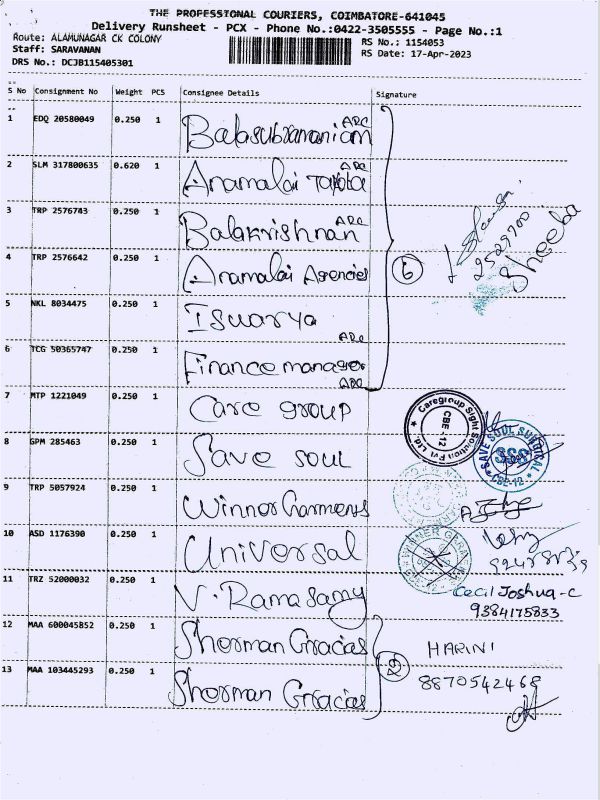 THE PROFESSIONAL COURIERS, COIMBATORE-641045
Delivery Runsheet - PCX - Phone No.:0422-3505555 - Page No.:1
Route: ALAMUNAGAR CK COLONY RS No.: 1154053
Staff: SARAVANAN RS Date: 17-Apr-2023
DRS No.: DCJB115405301
S No Consignment No Weight PCS Consignee Details Signature
1 EDQ 20580049 0.250 1 Balasubramaniam ARC
2 SLM 317800635 0.620 1 Anamalai Toyota ARC
3 TRP 2576743 0.250 1 Balakrishnan ARC
4 TRP 2576642 0.250 1 Anamalai Agencies 6 Sheeba
5 NKL 8034475 0.250 1 Iswarya
ARC
6 TCG 50365747 0.250 1 Finance manager
ARC
7 MTP 1221049 0.250 1 Care group Caregroup Sight Solution Pvt. Ltd. CBE-12
8 GPM 285463 0.250 1 Save soul SAVE SOUL SURGICAL SSS CBE-12
9 TRP 5057924 0.250 1 Winner Garments
10 ASD 1176390 0.250 1 Universal
11 TRZ 52000032 0.250 1 V. Ramasamy Cecil Joshua-C
9384175833
12 MAA 600045852 0.250 1 Sherman Gracias HARINI
13 MAA 103445293 0.250 1 Sherman Gracias 8870542468